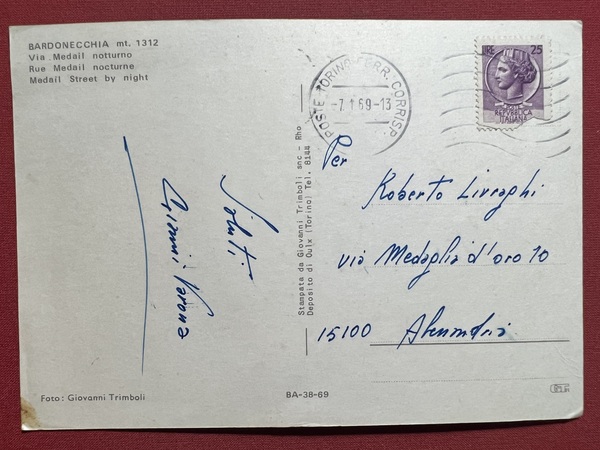 BARDONECCHIA mt. 1312
Via Medail notturno
Rue Medail nocturne
Medail Street by night
POSTE TORINO FERR. CORRISP.
-7 1 69-13
LIRE 25
REPVBBLICA
ITALIANA
Per
Roberto Livraghi
via Medaglia d'oro 10
15100 Alessandria
Saluti.
Gianni Varona
Stampata da Giovanni Trimboli snc - Rho
Deposito di Oulx (Torino) Tel. 8144
Foto: Giovanni Trimboli
BA-38-69